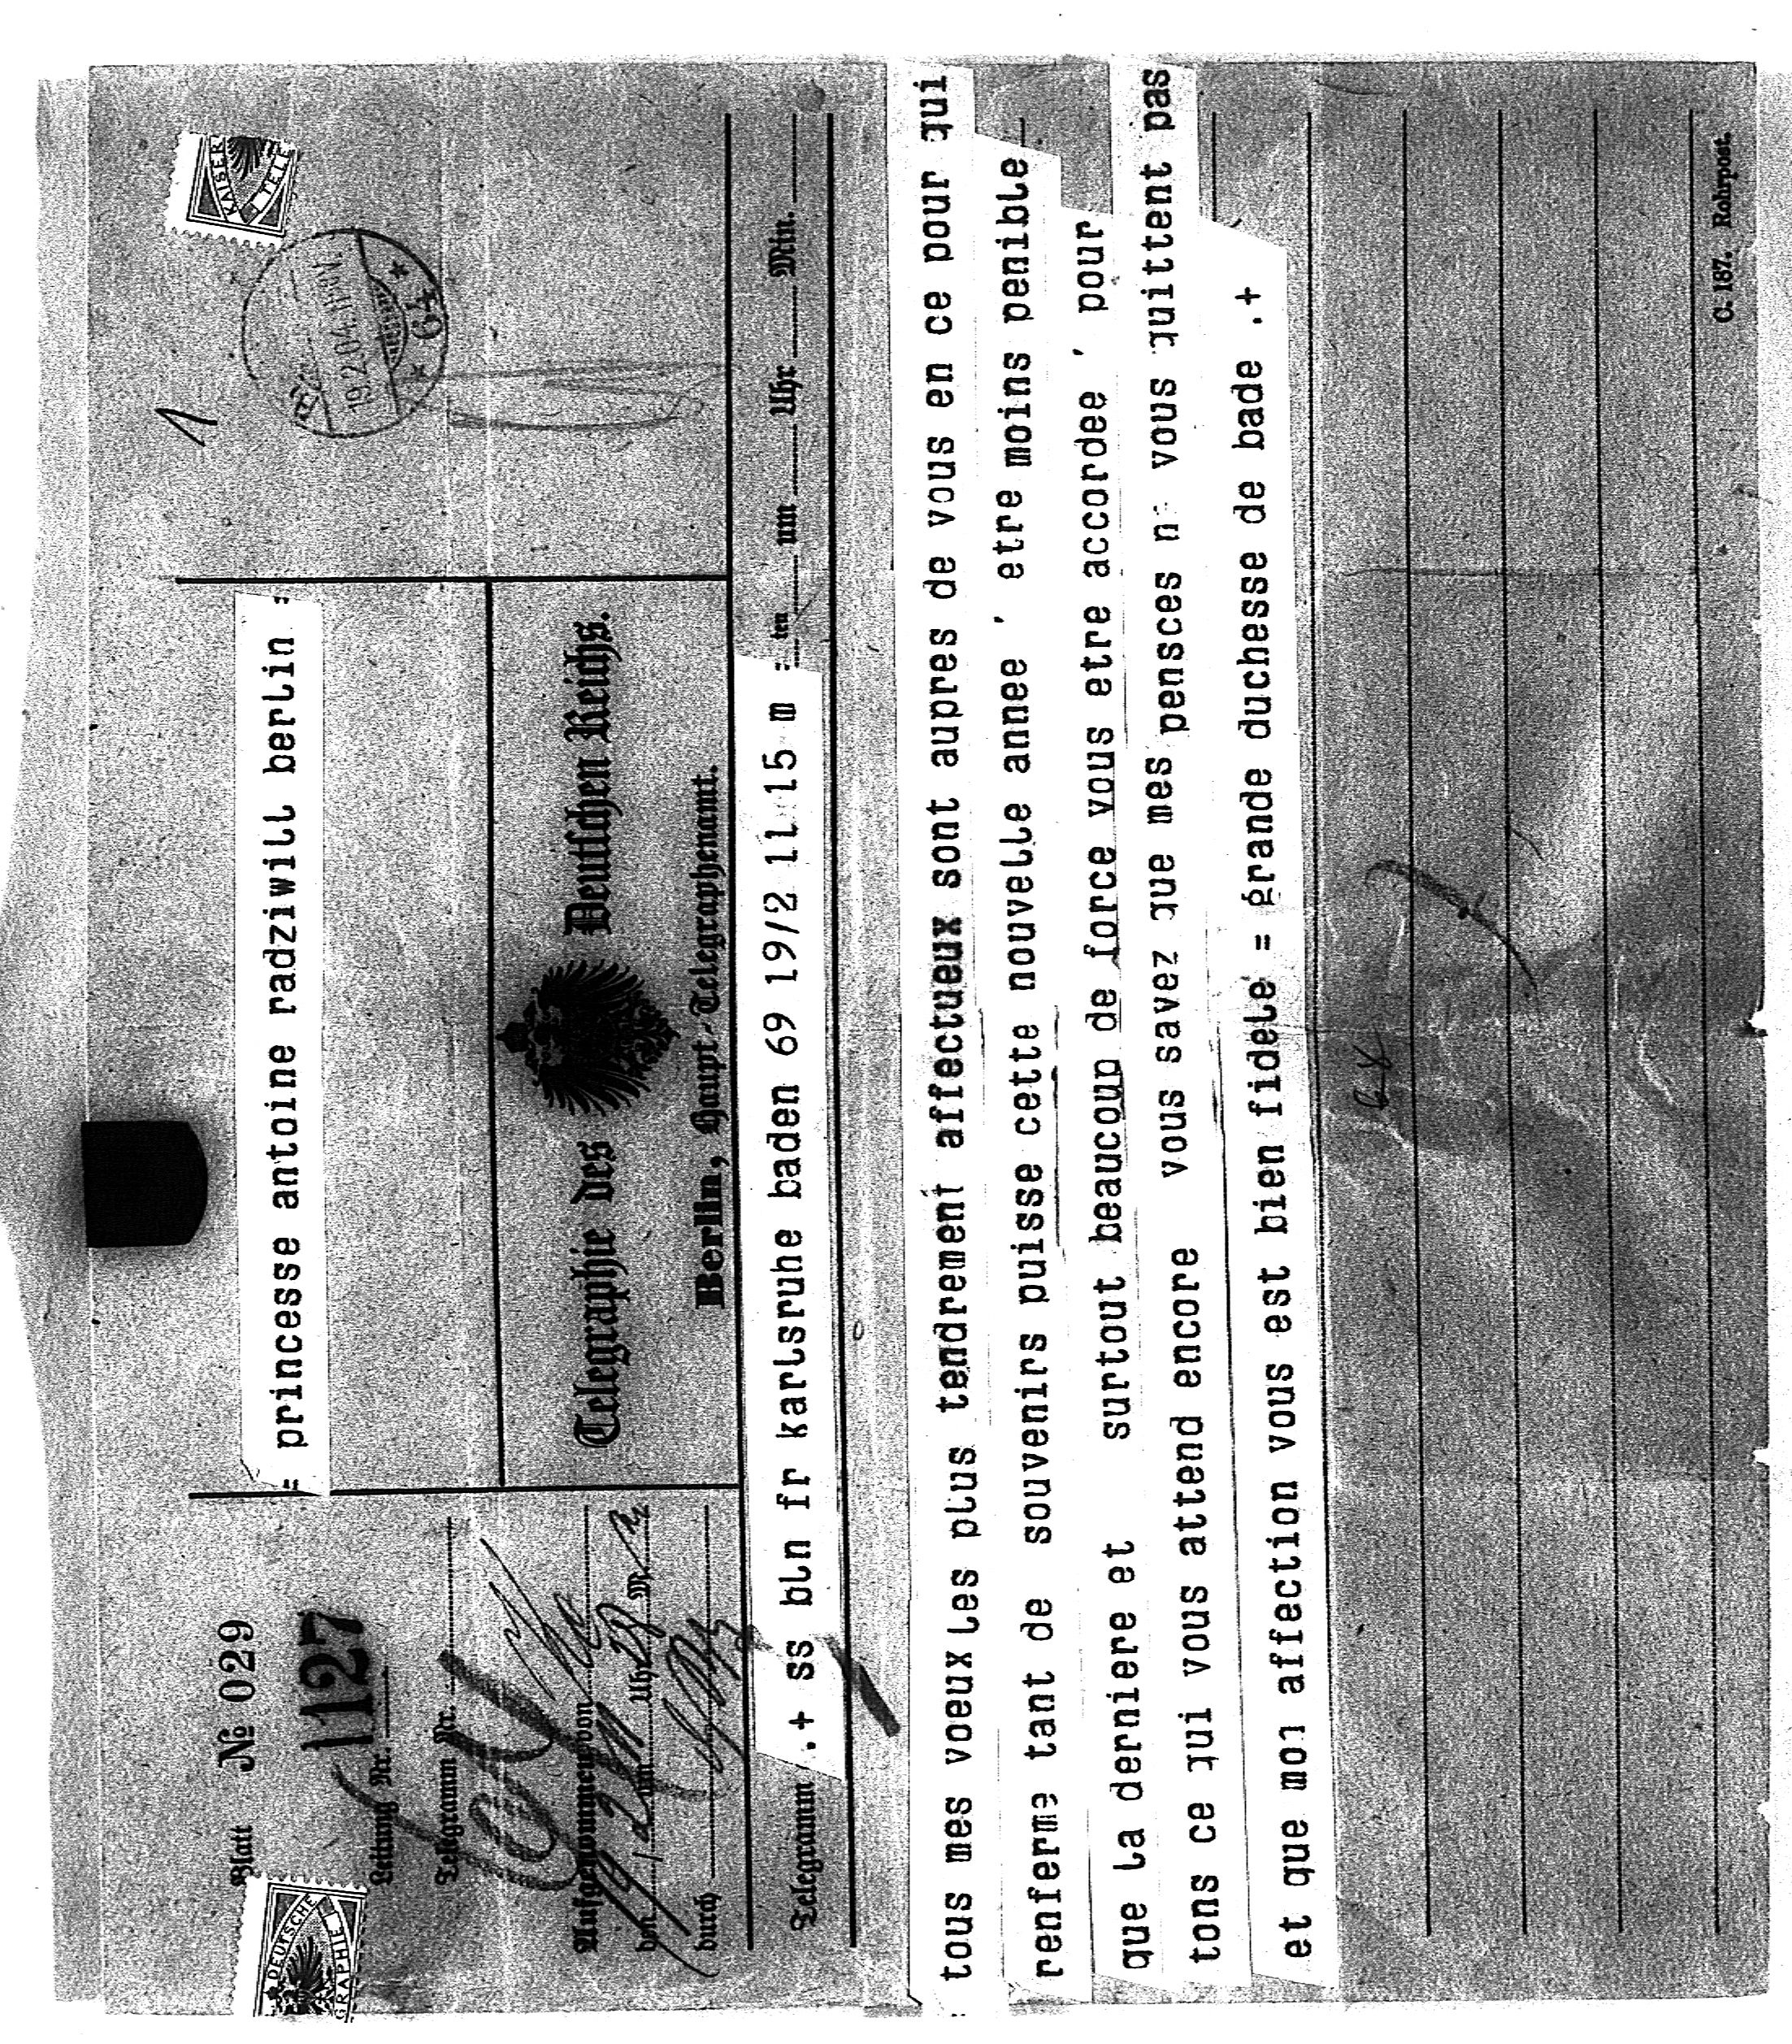 Blatt № 029
1127
Leitung Nr.
Telegramm Nr.
Aufgenommen von
den 19/2 um Uhr M.
durch
= princesse antoine radziwill berlin =
Telegraphie des Deutschen Reichs.
Berlin, Haupt-Telegraphenamt.
1
19.2.04.
* 64 *
KAISER
TELE
DEUTSCHE
GRAPHIE
Telegramm .+ ss bln fr karlsruhe baden 69 19/2 11 15 m = ten um Uhr Min.
tous mes voeux les plus tendrement affectueux sont aupres de vous en ce pour qui
renferme tant de souvenirs puisse cette nouvelle annee ' etre moins penible
que la derniere et surtout beaucoup de force vous etre accordee ' pour
tons ce qui vous attend encore vous savez que mes pensces n vous quittent pas
et que mon affection vous est bien fidele = grande duchesse de bade .+
C. 187. Rohrpost.